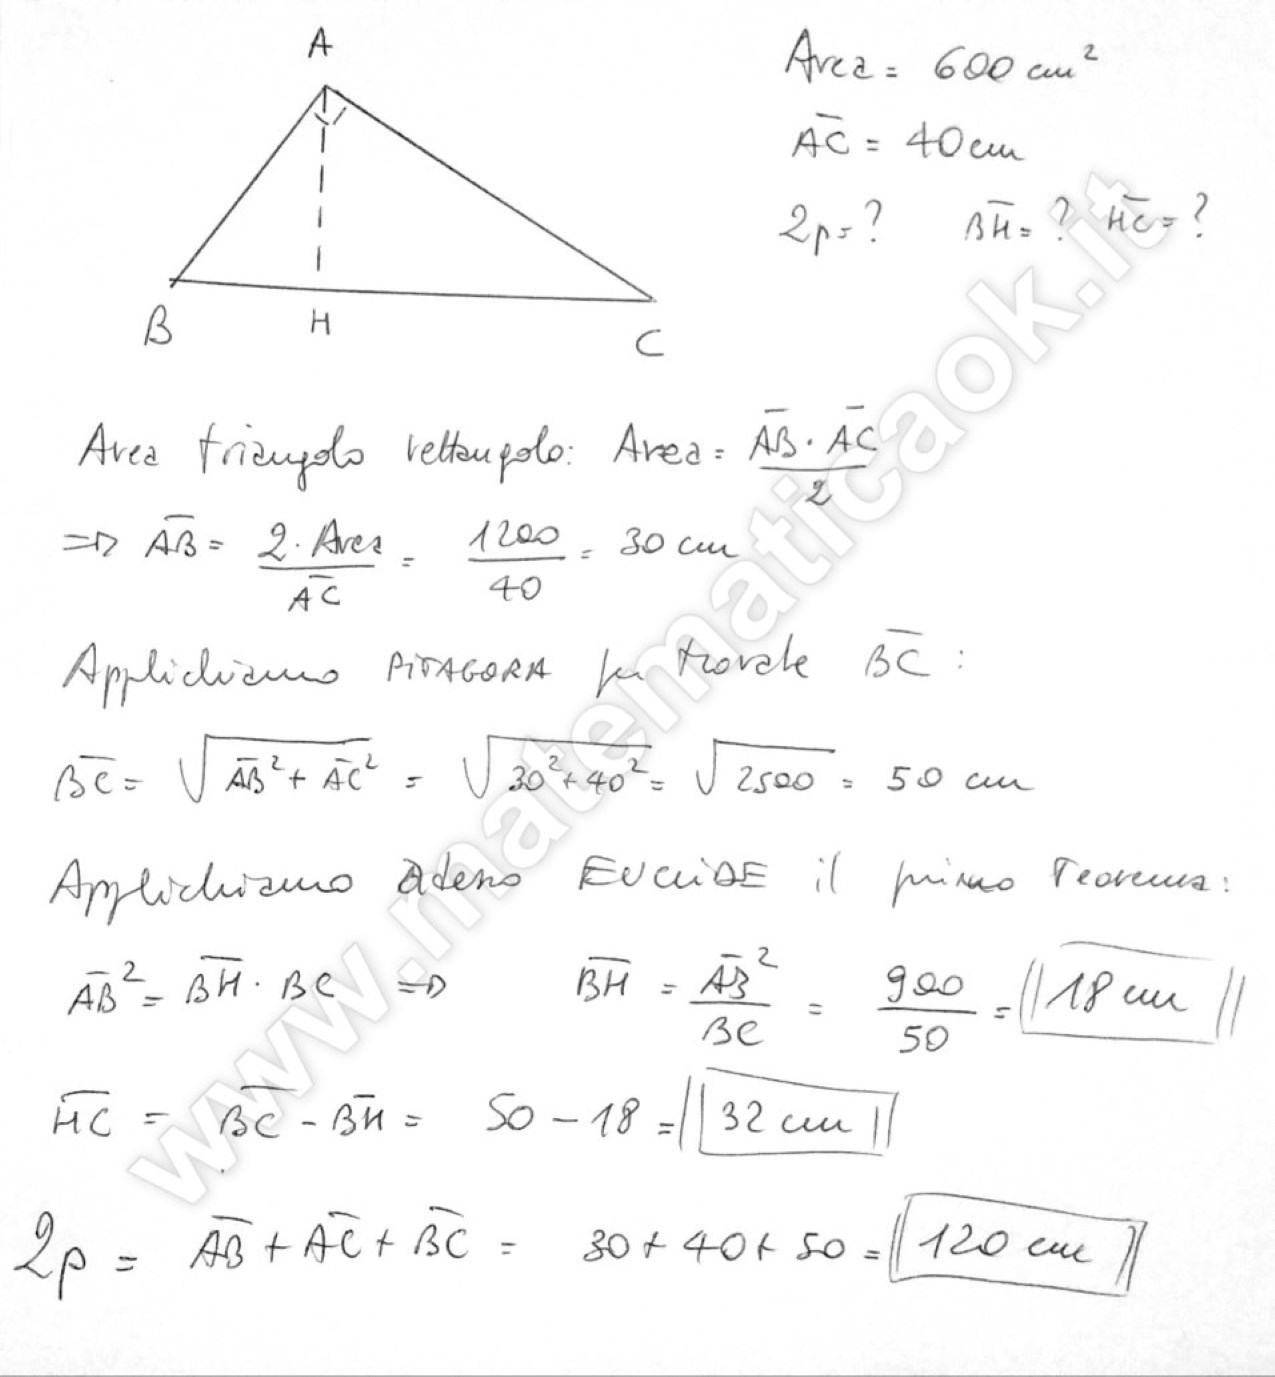 A
B
H
C
Area = 600 cm²
A̅C̅ = 40 cm
2p = ? B̅H̅ = ? H̅C̅ = ?
Area triangolo rettangolo: Area = A̅B̅ · A̅C̅ / 2
=> A̅B̅ = 2 · Area / A̅C̅ = 1200 / 40 = 30 cm
Applichiamo PITAGORA per trovare B̅C̅ :
B̅C̅ = √(A̅B̅² + A̅C̅²) = √(30² + 40²) = √2500 = 50 cm
Applichiamo adesso EUCLIDE il primo Teorema:
A̅B̅² = B̅H̅ · BC => B̅H̅ = A̅B̅² / BC = 900 / 50 = 18 cm
H̅C̅ = B̅C̅ - B̅H̅ = 50 - 18 = 32 cm
2p = A̅B̅ + A̅C̅ + B̅C̅ = 30 + 40 + 50 = 120 cm
www.matematicaok.it